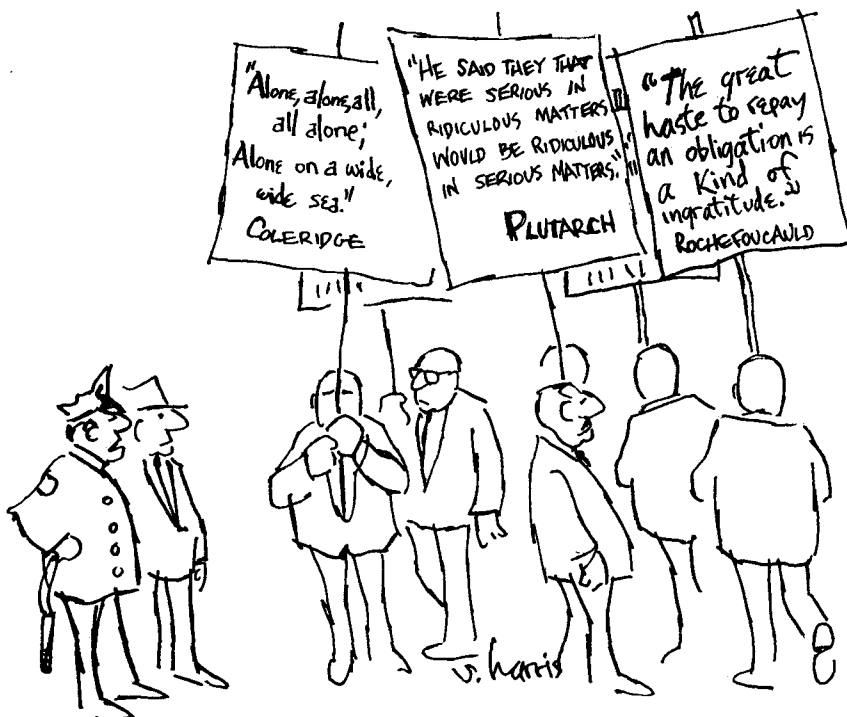 "Alone, alone, all,
all alone;
Alone on a wide,
wide sea."
COLERIDGE
"HE SAID THEY THAT
WERE SERIOUS IN
RIDICULOUS MATTERS
WOULD BE RIDICULOUS
IN SERIOUS MATTERS."
PLUTARCH
"The great
haste to repay
an obligation is
a kind of
ingratitude."
ROCHEFOUCAULD
S. harris